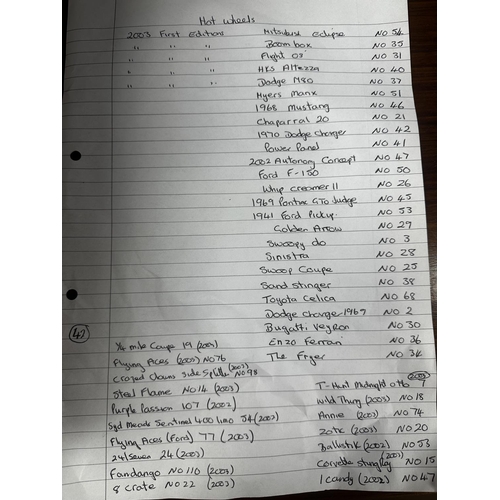 Hot wheels
2003 First editions Mitsubishi eclipse NO 54
" " " Boom box NO 35
" " " Flight 03' NO 31
" " " HKS Altezza NO 40
" " " Dodge M80 NO 37
Myers Manx NO 51
1968 Mustang NO 46
Chaparral 20 NO 21
1970 Dodge charger NO 42
Power Panel NO 41
2002 Autonomy Concept NO 47
Ford F-150 NO 50
Whip creamer II NO 26
1969 Pontiac GTO Judge NO 45
1941 Ford Pickup NO 53
Golden Arrow NO 29
Swoopy do NO 3
Sinistra NO 28
Swoop Coupe NO 25
Sand stinger NO 38
Toyota Celica NO 68
Dodge charger 1969 NO 2
Bugatti Veyron NO 30
42
1/4 mile Coupe 19 (2003) Enzo Ferrari NO 36
Flying Aces (2003) NO 76 The Fryer NO 34
Crazed Clowns Side Splitter (2003) NO 98
Steel Flame NO 14 (2003) T-Hunt Midnight otto 9 (2003)
Purple Passion 107 (2002) Wild Thing (2003) NO 18
Syd Meads Sentinel 400 limo 54 (2002) Annie (2003) NO 74
Flying Aces (Ford) 77 (2003) Zotic (2003) NO 20
24/Seven 24 (2003) Ballistik (2002) NO 53
Fandango NO 110 (2003) Corvette stingray (2003) NO 15
8 Crate NO 22 (2003) I candy (2002) NO 47